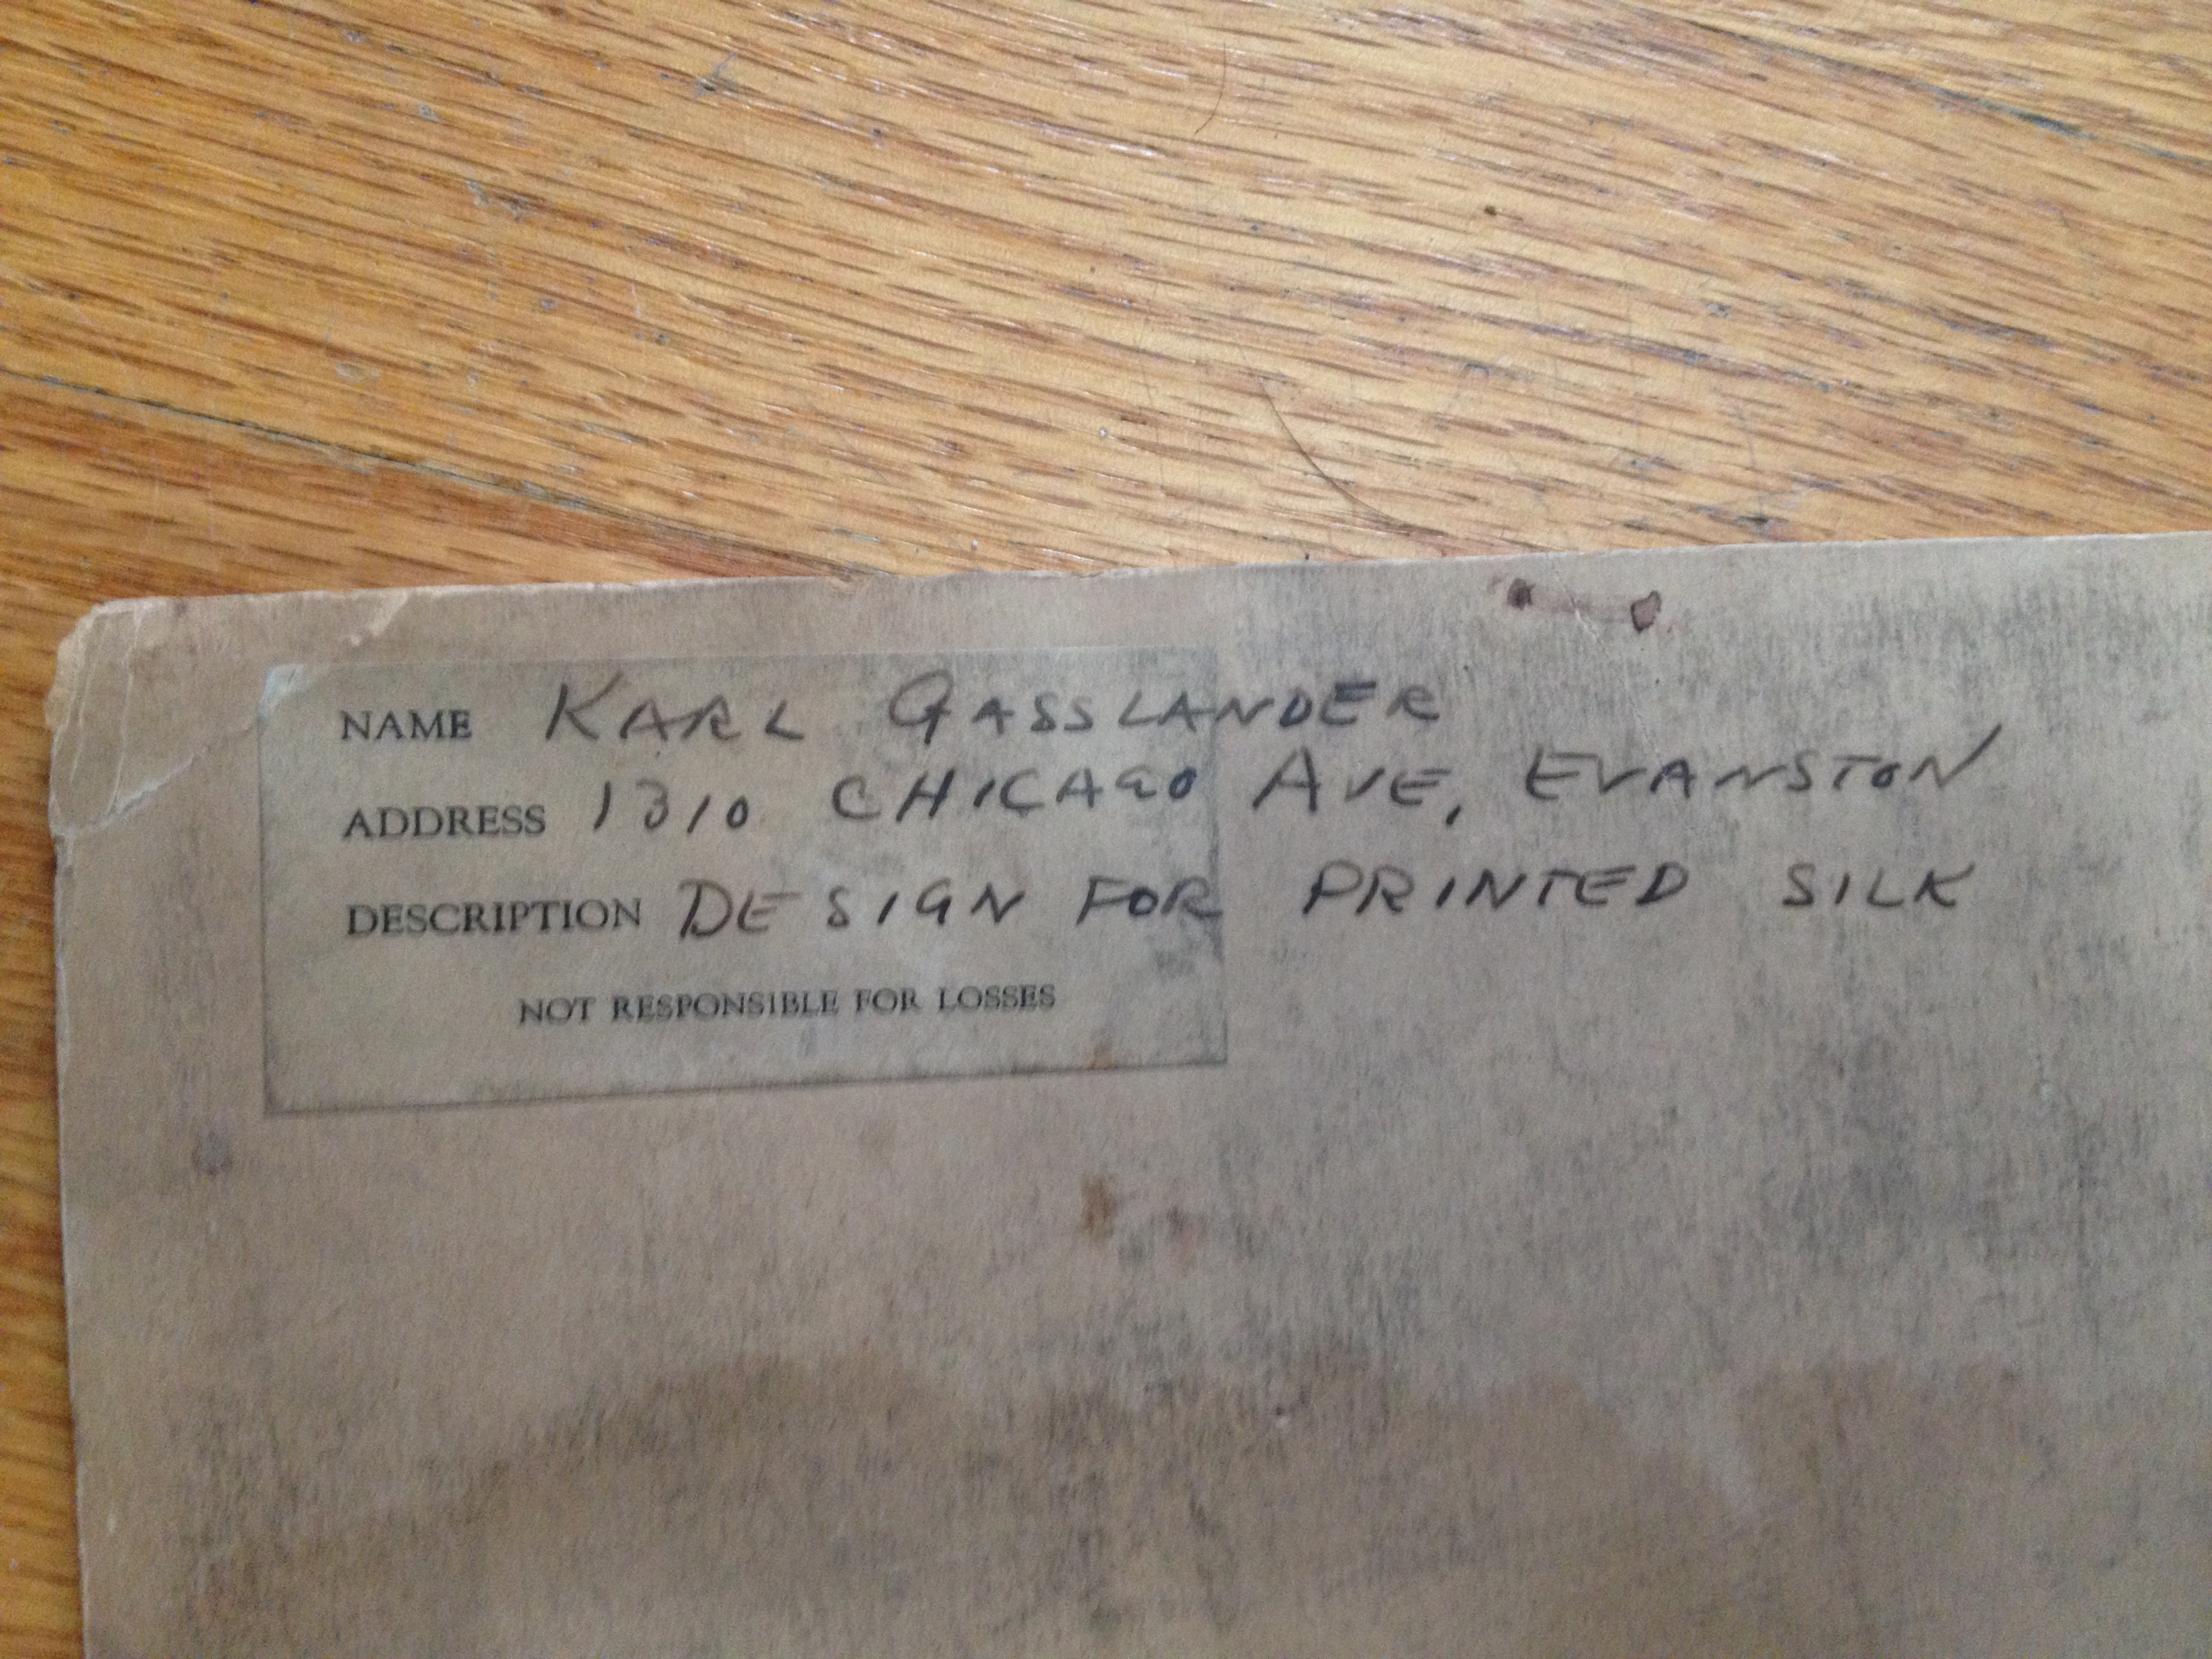 NAME KARL GASSLANDER
ADDRESS 1310 CHICAGO AVE, EVANSTON
DESCRIPTION DESIGN FOR PRINTED SILK
NOT RESPONSIBLE FOR LOSSES